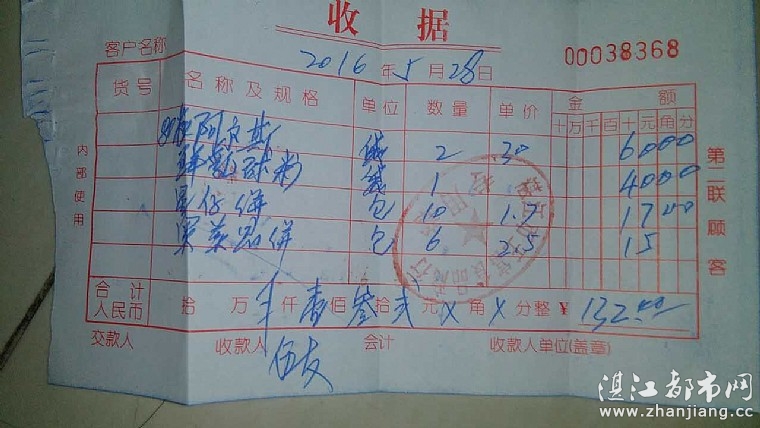 收据
客户名称
2016年5月28日
00038368
货号 名称及规格 单位 数量 单价 金额
十万千百十元角分
阿 斯 袋 2 30 6000
球 粉 袋 1 4000
仔饼 包 10 1.7 1700
饼 包 6 2.5 15
内部使用
第二联 顾客
合计人民币 拾 万 仟 壹佰 叁拾 贰元 X角 X分整 ¥ 132.00
交款人 收款人 会计 收款人单位(盖章)
伍友
湛江都市网
www.zhanjiang.cc